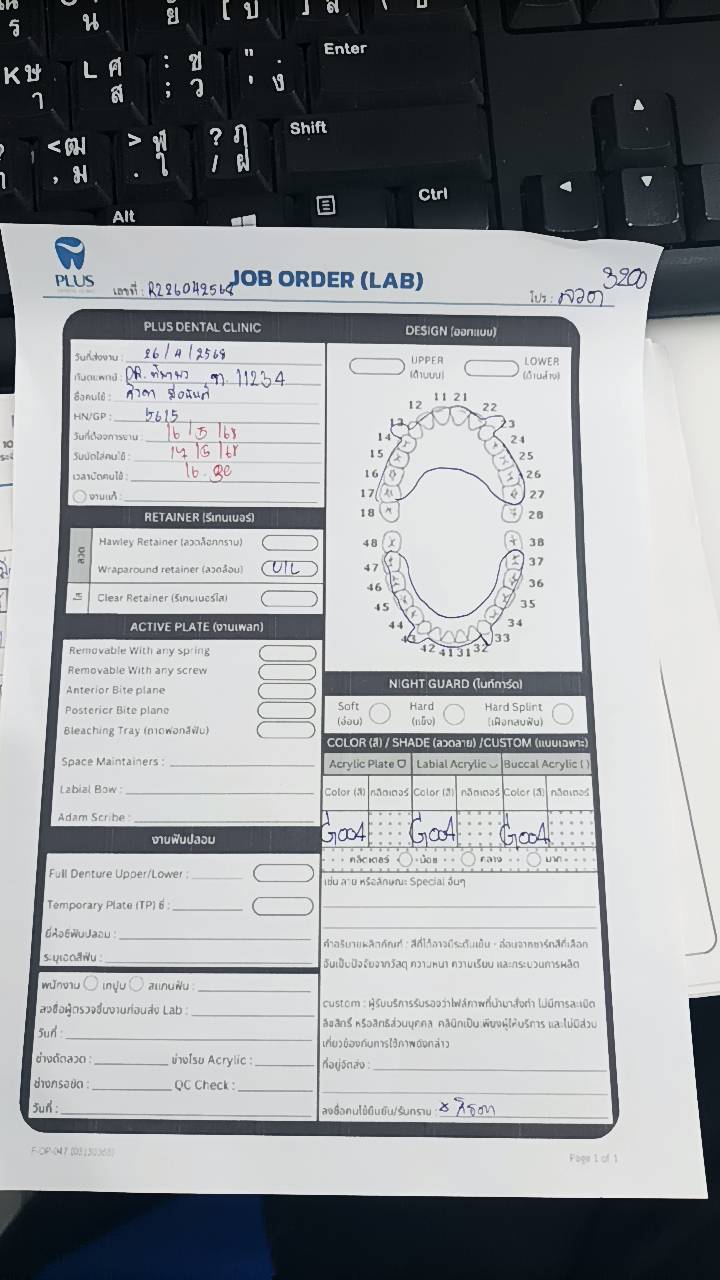 Enter
Shift
Alt
Ctrl
PLUS
เลขที่ : R226042568
JOB ORDER (LAB)
3200
โปร : ลวด
PLUS DENTAL CLINIC
วันที่ส่งงาน : 26/4/2568
ทันตแพทย์ : DR. ท. 11234
ชื่อคนไข้ :
HN/GP : 5615
วันที่ต้องการงาน : 16/5/68
วันนัดใส่คนไข้ : 17/5/68
เวลานัดคนไข้ : 16.30
งานแก้ :
RETAINER (รีเทนเนอร์)
ลวด
Hawley Retainer (ลวดล็อกกราม)
Wraparound retainer (ลวดล้อม) U/L
ใส
Clear Retainer (รีเทนเนอร์ใส)
ACTIVE PLATE (งานเพลท)
Removable With any spring
Removable With any screw
Anterior Bite plane
Posterior Bite plane
Bleaching Tray (ถาดฟอกสีฟัน)
Space Maintainers :
Labial Bow :
Adam Scribe :
งานฟันปลอม
Full Denture Upper/Lower :
Temporary Plate (TP) ซี่ :
ยี่ห้อซี่ฟันปลอม :
ระบุเฉดสีฟัน :
พนักงาน เทปูน สแกนฟัน :
ลงชื่อผู้ตรวจชิ้นงานก่อนส่ง Lab :
วันที่ :
ช่างดัดลวด : ช่างโรย Acrylic :
ช่างกรอขัด : QC Check :
วันที่ :
DESIGN (ออกแบบ)
UPPER (ด้านบน)
LOWER (ด้านล่าง)
11 21
12 22
13 23
14 24
15 25
16 26
17 27
18 28
48 38
47 37
46 36
45 35
44 34
43 33
42 41 31 32
NIGHT GUARD (ไนท์การ์ด)
Soft (อ่อน)
Hard (แข็ง)
Hard Splint (เฝือกสบฟัน)
COLOR (สี) / SHADE (ลวดลาย) /CUSTOM (แบบเฉพาะ)
Acrylic Plate Labial Acrylic Buccal Acrylic ( )
Color (สี) กลิตเตอร์ Color (สี) กลิตเตอร์ Color (สี) กลิตเตอร์
Good Good Good
กลิตเตอร์ น้อย กลาง มาก
เช่น ลาย หรือลักษณะ Special อื่นๆ
คำอธิบายผลิตภัณฑ์ : สีที่ได้อาจมีระดับเข้ม - อ่อนจากชาร์ทสีที่เลือก
อันเป็นปัจจัยจากวัสดุ ความหนา ความเรียบ และกระบวนการผลิต
custom : ผู้รับบริการรับรองว่าไฟล์ภาพที่นำมาสั่งทำ ไม่มีการละเมิด
ลิขสิทธิ์ หรือสิทธิส่วนบุคคล คลินิกเป็น เพียงผู้ให้บริการ และไม่มีส่วน
เกี่ยวข้องกับการใช้ภาพดังกล่าว
ที่อยู่จัดส่ง :
ลงชื่อคนไข้ยืนยัน/รับทราบ :
Page 1 of 1